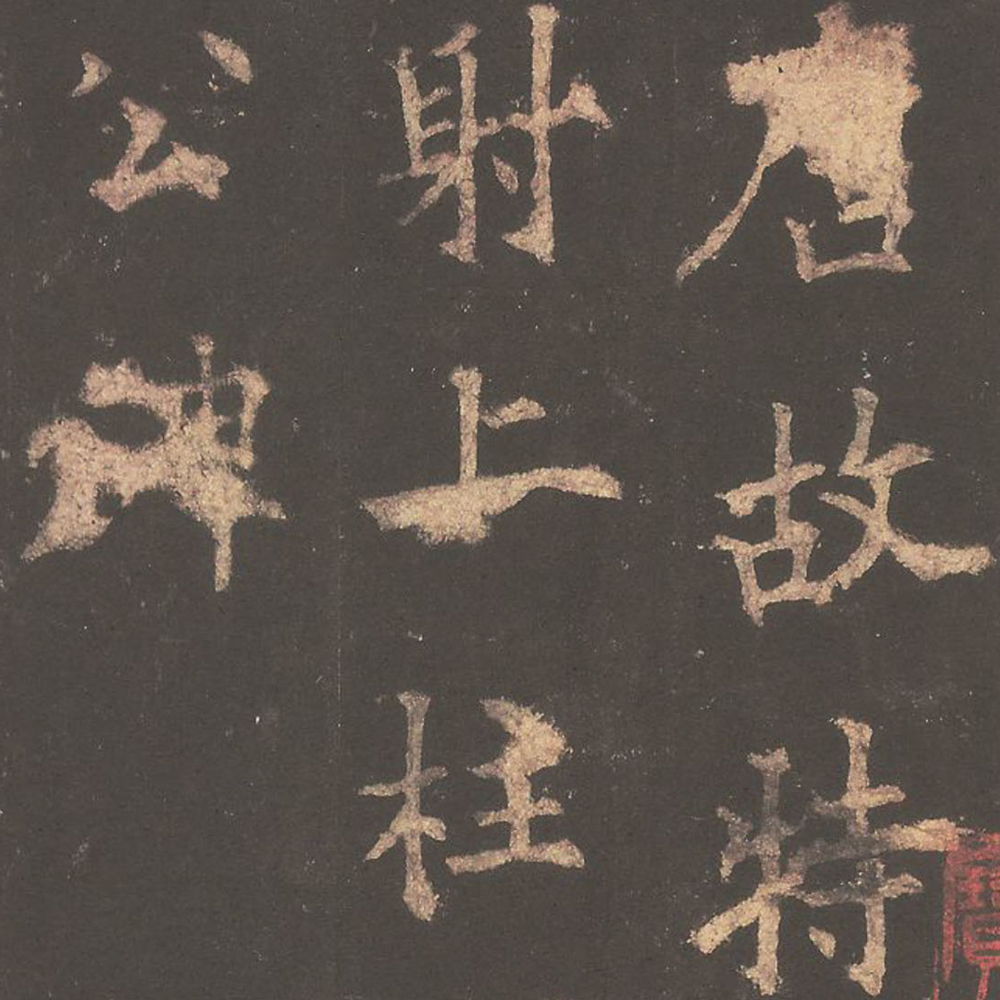 唐故特
射上柱
公碑